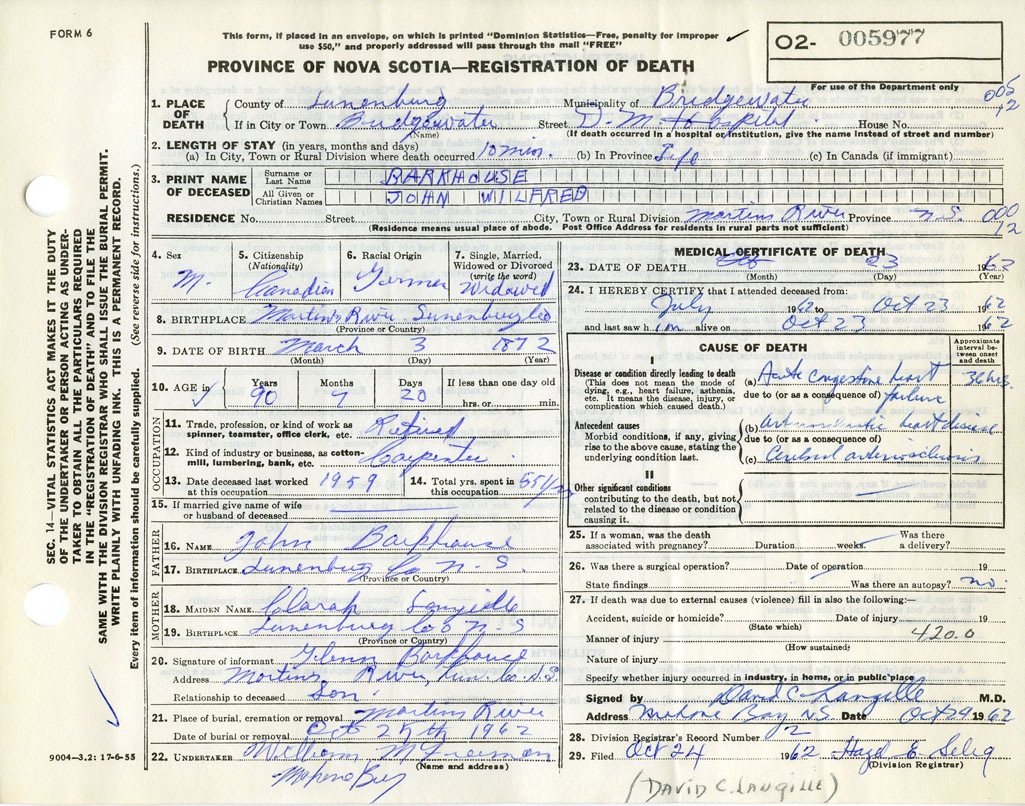 FORM 6
This form, if placed in an envelope, on which is printed "Dominion Statistics—Free, penalty for improper
use $50," and properly addressed will pass through the mail "FREE"
PROVINCE OF NOVA SCOTIA—REGISTRATION OF DEATH
02- 005977
For use of the Department only
SEC. 14—VITAL STATISTICS ACT MAKES IT THE DUTY
OF THE UNDERTAKER OR PERSON ACTING AS UNDER-
TAKER TO OBTAIN ALL THE PARTICULARS REQUIRED
IN THE "REGISTRATION OF DEATH" AND TO FILE THE
SAME WITH THE DIVISION REGISTRAR WHO SHALL ISSUE THE BURIAL PERMIT.
WRITE PLAINLY WITH UNFADING INK. THIS IS A PERMANENT RECORD.
Every item of information should be carefully supplied. (See reverse side for instructions.)
1. PLACE OF DEATH County of Lunenburg Municipality of Bridgewater 005 12
If in City or Town Bridgewater Street D. M. Hospital House No.
(Name) (If death occurred in a hospital or institution, give the name instead of street and number)
2. LENGTH OF STAY (in years, months and days)
(a) In City, Town or Rural Division where death occurred 10 min. (b) In Province (c) In Canada (if immigrant)
3. PRINT NAME OF DECEASED Surname or Last Name BARKHOUSE
All Given or Christian Names JOHN WILFRED
RESIDENCE No. Street City, Town or Rural Division Martins River Province N.S. 000 12
(Residence means usual place of abode. Post Office Address for residents in rural parts not sufficient)
4. Sex M.
5. Citizenship (Nationality) Canadian
6. Racial Origin German
7. Single, Married, Widowed or Divorced (write the word) Widowed
8. BIRTHPLACE Martins River Lunenburg Co
(Province or Country)
9. DATE OF BIRTH March 3 1872
(Month) (Day) (Year)
10. AGE in Years 90 Months 7 Days 20 If less than one day old hrs. or min.
OCCUPATION
11. Trade, profession, or kind of work as spinner, teamster, office clerk, etc. Retired
12. Kind of industry or business, as cotton-mill, lumbering, bank, etc. Carpenter
13. Date deceased last worked at this occupation 1959 14. Total yrs. spent in this occupation 55 yrs
15. If married give name of wife or husband of deceased
FATHER
16. NAME John Barkhouse
17. BIRTHPLACE Lunenburg Co N-S.
(Province or Country)
MOTHER
18. MAIDEN NAME Clarah Langille
19. BIRTHPLACE Lunenburg Co N-S
(Province or Country)
20. Signature of informant Glenn Barkhouse
Address Martins River, Lun. Co. N.S.
Relationship to deceased Son.
21. Place of burial, cremation or removal Martins River
Date of burial or removal Oct 25th 1962
22. UNDERTAKER William M
(Name and address)
9004—3.2: 17-6-55
MEDICAL CERTIFICATE OF DEATH
23. DATE OF DEATH 23 1962
(Month) (Day) (Year)
24. I HEREBY CERTIFY that I attended deceased from:
July 1962 to Oct 23 1962
and last saw him alive on Oct 23 1962
CAUSE OF DEATH
Approximate interval between onset and death
I
Disease or condition directly leading to death
(This does not mean the mode of dying, e.g., heart failure, asthenia, etc. It means the disease, injury, or complication which caused death.)
(a) Acute congestive heart failure 36 hrs.
due to (or as a consequence of)
Antecedent causes
Morbid conditions, if any, giving rise to the above cause, stating the underlying condition last.
(b) Arteriosclerotic heart disease
due to (or as a consequence of)
(c) Cerebral arteriosclerosis
II
Other significant conditions
contributing to the death, but not related to the disease or condition causing it.
25. If a woman, was the death associated with pregnancy? Duration weeks. Was there a delivery?
26. Was there a surgical operation? Date of operation 19
State findings Was there an autopsy? no.
27. If death was due to external causes (violence) fill in also the following:—
Accident, suicide or homicide? Date of injury 19
(State which)
Manner of injury 420.0
(How sustained)
Nature of injury
Specify whether injury occurred in industry, in home, or in public place
Signed by David C Langille M.D.
Address Mahone Bay NS Date Oct 29 1962
28. Division Registrar's Record Number 72
29. Filed Oct 24 1962 Hazel E. Selig
(Division Registrar)
(DAVID C. LANGILLE)